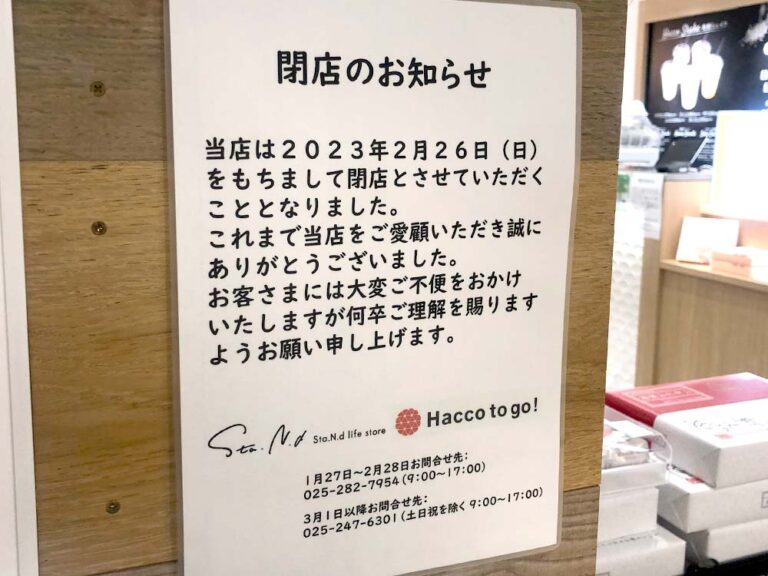 閉店のお知らせ
当店は2023年2月26日(日)
をもちまして閉店とさせていただく
こととなりました。
これまで当店をご愛顧いただき誠に
ありがとうございました。
お客さまには大変ご不便をおかけ
いたしますが何卒ご理解を賜ります
ようお願い申し上げます。
Sta.N.d Sta.N.d life store Hacco to go!
1月27日~2月28日お問合せ先:
025-282-7954(9:00~17:00)
3月1日以降お問合せ先:
025-247-6301(土日祝を除く 9:00~17:00)